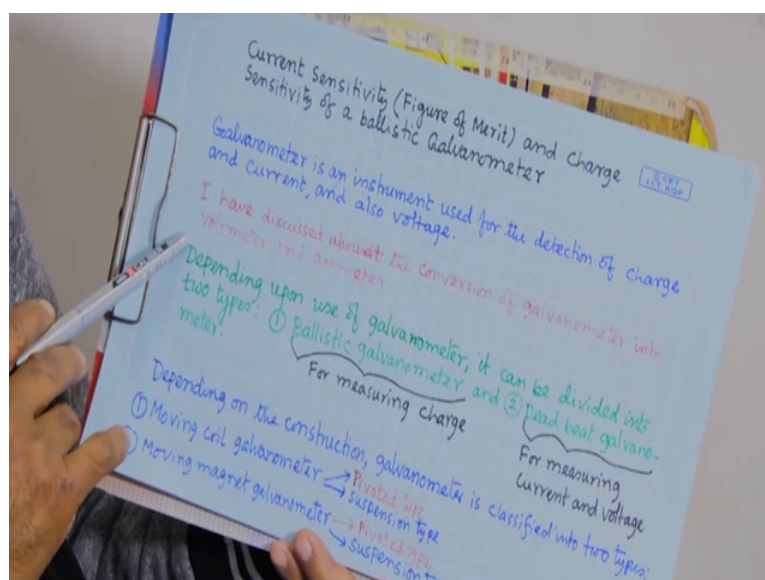 Current Sensitivity (Figure of Merit) and Charge
Sensitivity of a ballistic Galvanometer
© CET
I.I.T. KGP
Galvanometer is an instrument used for the detection of charge
and current, and also voltage.
I have discussed about the conversion of galvanometer into
voltmeter and ammeter.
Depending upon use of galvanometer, it can be divided into
two types: ① Ballistic galvanometer and ② Dead beat galvano-
meter.
For measuring charge
For measuring
current and voltage
Depending on the construction, galvanometer is classified into two types:
① Moving coil galvanometer → Pivoted type
→ Suspension type
Moving magnet galvanometer → Pivoted type
→ Suspension